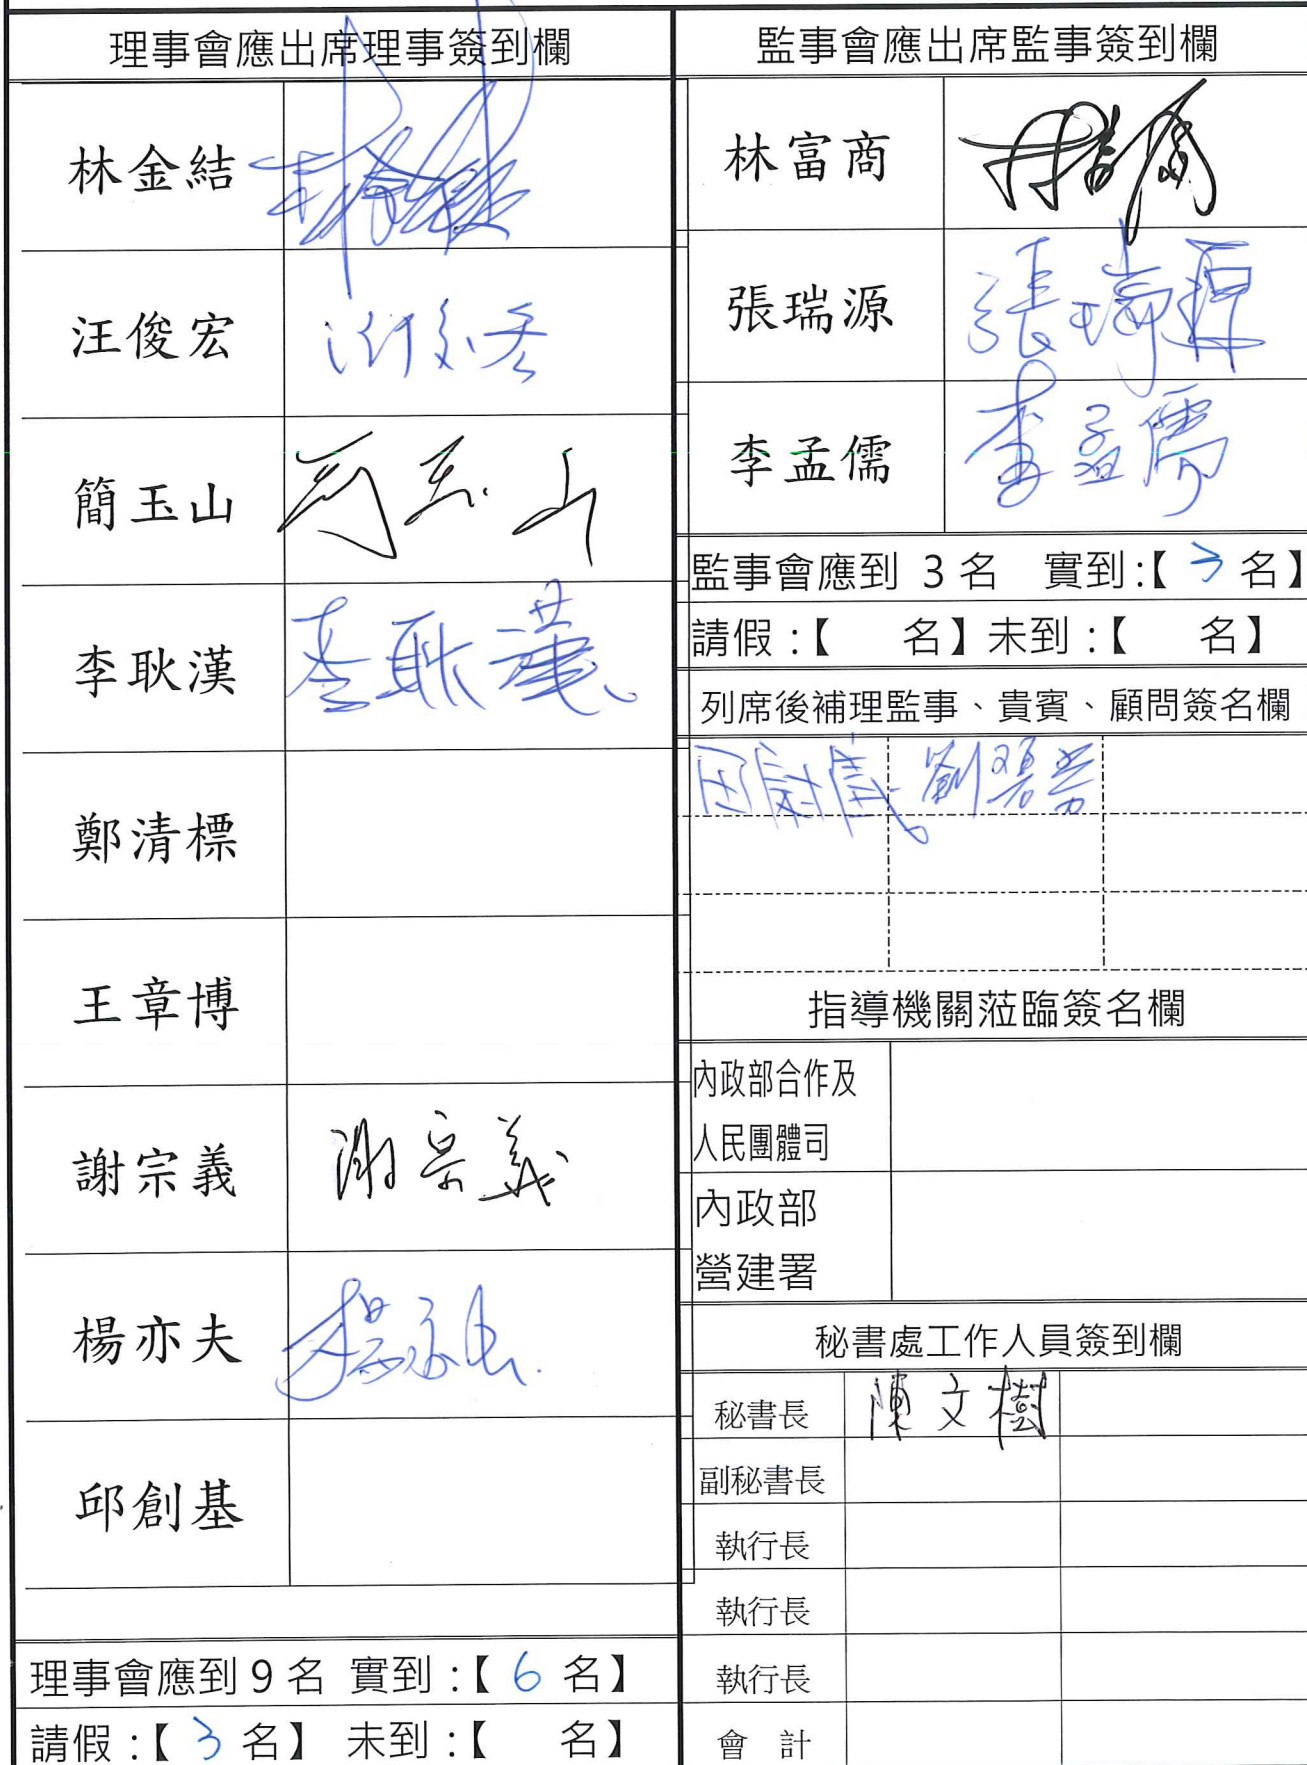 理事會應出席理事簽到欄
林金結 林金結
汪俊宏 汪俊宏
簡玉山 簡玉山
李耿漢 李耿漢
鄭清標
王章博
謝宗義 謝宗義
楊亦夫 楊亦夫
邱創基
理事會應到 9 名 實到:【 6 名】
請假:【 3 名】 未到:【 名】
監事會應出席監事簽到欄
林富商 林富商
張瑞源 張瑞源
李孟儒 李孟儒
監事會應到 3 名 實到:【 3 名】
請假:【 名】未到:【 名】
列席後補理監事、貴賓、顧問簽名欄
指導機關蒞臨簽名欄
內政部合作及
人民團體司
內政部
營建署
秘書處工作人員簽到欄
秘書長 陳文樹
副秘書長
執行長
執行長
執行長
會 計